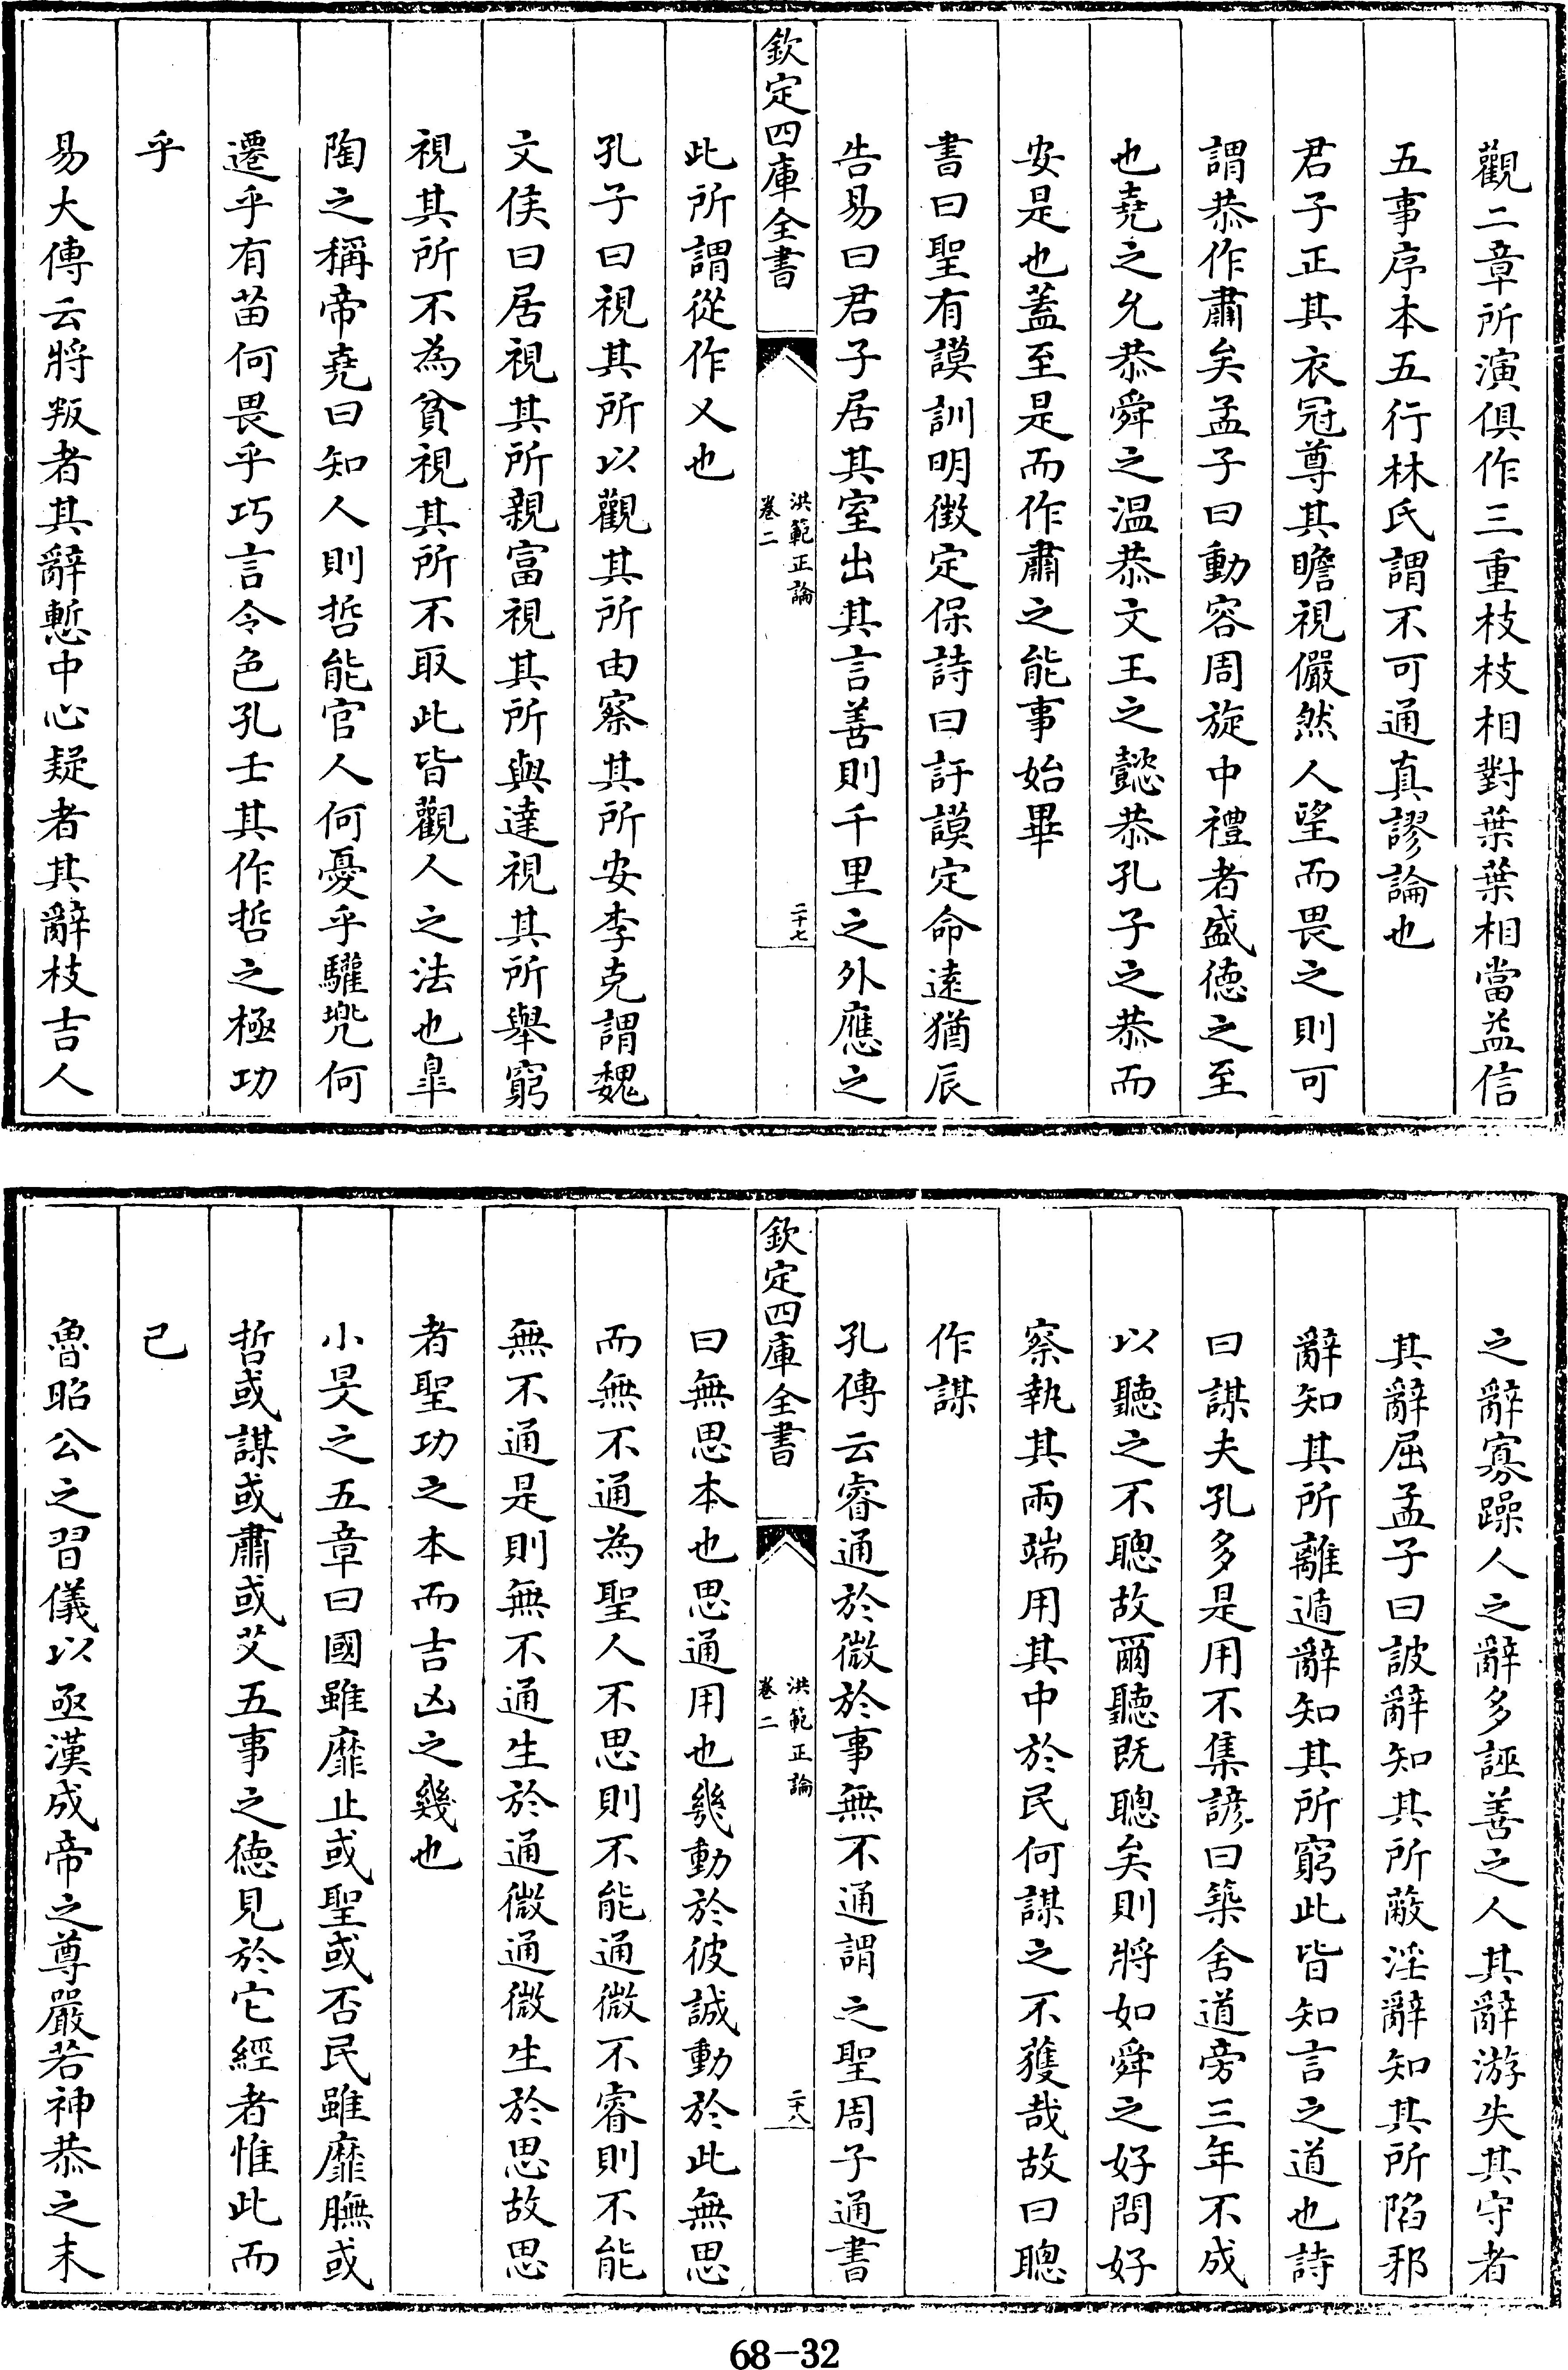 觀二章所演俱作三重枝枝相對葉葉相當益信
五事序本五行林氏謂不可通真謬論也
君子正其衣冠尊其瞻視儼然人望而畏之則可
謂恭作肅矣孟子曰動容周旋中禮者盛德之至
也堯之允恭舜之温恭文王之懿恭孔子之恭而
安是也蓋至是而作肅之能事始畢
書曰聖有謨訓明徴定保詩曰訏謨定命逺猶辰
告易曰君子居其室出其言善則千里之外應之
欽定四庫全書
洪範正論
卷二
二十七
此所謂從作乂也
孔子曰視其所以觀其所由察其所安李克謂魏
文侯曰居視其所親富視其所與達視其所舉窮
視其所不為貧視其所不取此皆觀人之法也臯
陶之稱帝堯曰知人則哲能官人何憂乎驩兜何
遷乎有苗何畏乎巧言令色孔壬其作哲之極功
乎
易大傳云將叛者其辭慙中心疑者其辭枝吉人
之辭寡躁人之辭多誣善之人其辭游失其守者
其辭屈孟子曰詖辭知其所蔽淫辭知其所陷邪
辭知其所離遁辭知其所窮此皆知言之道也詩
曰謀夫孔多是用不集諺曰築舍道旁三年不成
以聽之不聰故爾聽既聰矣則將如舜之好問好
察執其兩端用其中於民何謀之不獲哉故曰聰
作謀
孔傳云睿通於微於事無不通謂之聖周子通書
欽定四庫全書
洪範正論
卷二
二十八
曰無思本也思通用也幾動於彼誠動於此無思
而無不通為聖人不思則不能通微不睿則不能
無不通是則無不通生於通微通微生於思故思
者聖功之本而吉凶之幾也
小旻之五章曰國雖靡止或聖或否民雖靡膴或
哲或謀或肅或艾五事之德見於它經者惟此而
已
魯昭公之習儀以亟漢成帝之尊嚴若神恭之末
68-32